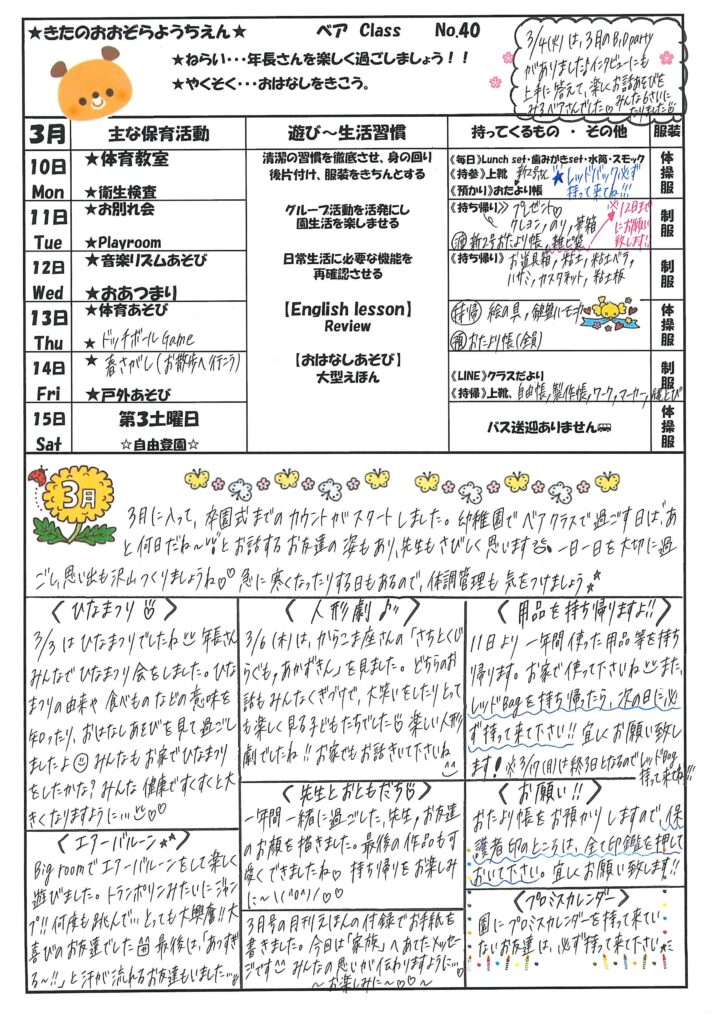 ★きたのおおぞらようちえん★ ベア Class No.40
★ねらい・・・年長さんを楽しく過ごしましょう！！
★やくそく・・・おはなしをきこう。
3/4(火)は、3月のB,D party
がありました♪インタビューにも
上手に答えて、楽しくお話あそびを
みるベアさんでした♡みんな6さいに
なりました
3月 主な保育活動 遊び～生活習慣 持ってくるもの ・ その他 服装
10日 Mon
★体育教室
★衛生検査
清潔の習慣を徹底させ、身の回り
後片付け、服装をきちんとする
《毎日》Lunch set・歯みがきset・水筒・スモック
《持参》上靴、
《預かり》おたより帳
★レッドバック必ず
持って来てね!!!
体操服
11日 Tue
★お別れ会
★Playroom
グループ活動を活発にし
園生活を楽しませる
《持ち帰り》プレゼント♡
クレヨン,のり,筆箱
新2号おたより帳,雑と袋
※12日まで
にお願い
致します!!
制服
12日 Wed
★音楽リズムあそび
★おあつまり
日常生活に必要な機能を
再確認させる
《持ち帰り》お道具箱,粘土,粘土ベラ,
ハサミ,カスタネット,粘土板
制服
13日 Thu
★体育あそび
★ドッチボールGame
【English lesson】
Review
持帰 絵の具,鍵盤ハーモニカ
預 おたより帳(全員)
体操服
14日 Fri
★春さがし(お散歩へ行こう)
★戸外あそび
【おはなしあそび】
大型えほん
《LINE》クラスだより
《持帰》上靴、自由帳,製作帳,ワーク,マーカー,縄とび
制服
15日 Sat
第3土曜日
☆自由登園☆
バス送迎ありません
体操服
3月
3月に入って、卒園式までのカウントがスタートしました。幼稚園でベアクラスで過ごす日は、“あ
と何日だね～”とお話するお友達の姿もあり、先生もさびしく思います 一日一日を大切に過
ごし、思い出も沢山つくりましょうね♡ 急に寒くなったりする日もあるので、体調管理も気をつけましょう
〈ひなまつり〉
3/3はひなまつりでしたね 年長さん
みんなでひなまつり会をしました。ひな
まつりの由来や食べものなどの意味を
知ったり、おはなしあそびを見て過ごし
ましたよ みんなもお家でひなまつり
をしたかな？みんな健康ですくすくと大
きくなりますように…♡♡
〈人形劇♪〉
3/6(木)は、からこま座さんの「さちとくじ
らぐも,あかずきん」を見ました。どちらのお
話もみんなくぎづけで、大笑いをしたりとって
も楽しく見る子どもたちでした 楽しい人形
劇でしたね!!お家でもお話きいて下さいね^^
〈用品を持ち帰りますよ!!〉
11日より一年間使った用品等を持ち
帰ります。お家で使って下さいね また、
レッドBagを持ち帰ったら、次の日に必
ず持って来て下さい!!宜しくお願い致し
ます! ※3/17(月)は終了日となるのでレッドBag
持って来てね!!!
〈先生とおともだち〉
一年間一緒に過ごした、先生,お友達
のお顔を描きました。最後の作品もす
寧くできましたね♡ 持ち帰りをお楽しみ
に～\(^o^)/♡♡
〈お願い!!〉
おたより帳をお預かりしますので、保
護者印のところは、全て印鑑を押して
おいて下さい。宜しくお願い致します!!
〈エアーバルーン★★〉
Big roomでエアーバルーンをして楽しく
遊びました。トランポリンみたいにジャン
プ!!何度も跳んで…とっても大興奮!!大
喜びのお友達でした 最後は、「あっすぎ
る～!!」と汗が流れるお友達もいました…
3月号の月刊えほんの付録でお手紙を
書きました。今日は「家族」へあてたメッセー
ジです^^みんなの思いが伝わりますように…
～お楽しみに～♡♡～
〈プロミスカレンダー〉
園にプロミスカレンダーを持って来てい
ないお友達は、必ず持って来て下さい